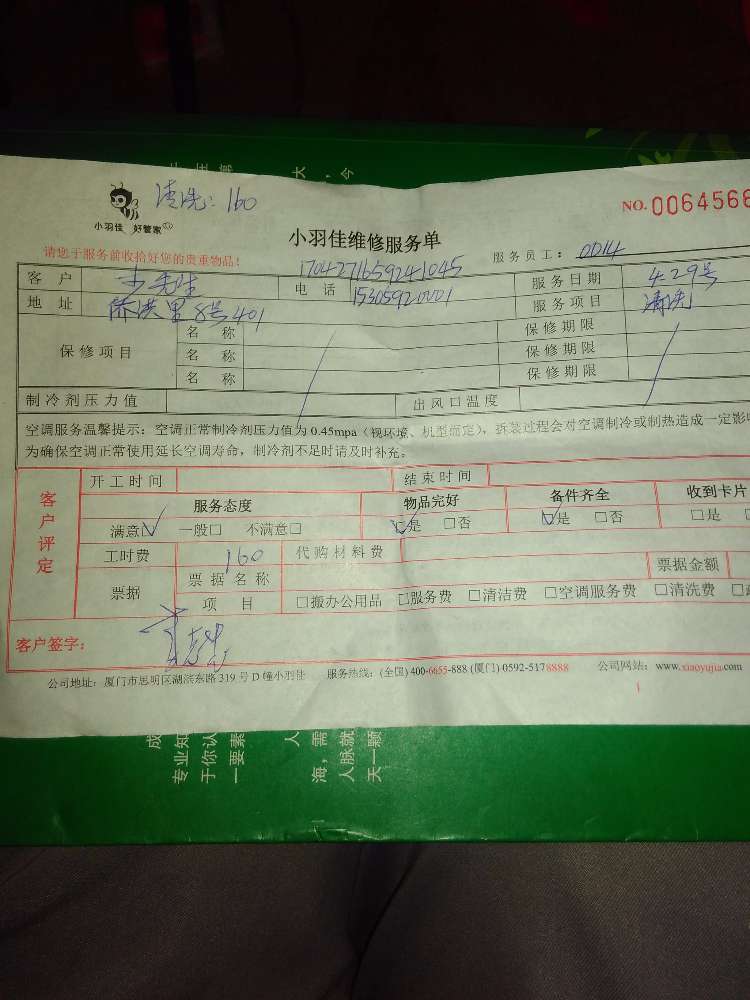 清洗:160
小羽佳 好管家
NO.0064566
小羽佳维修服务单
请您于服务前收拾好您的贵重物品!
服务员工: 0D14
1704271659241045
客户 先生 电话 15305920001 服务日期 4.29号
地址 侨洪里8号401 服务项目 清洗
保修项目 名称 保修期限
名称 保修期限
名称 保修期限
制冷剂压力值 出风口温度
空调服务温馨提示:空调正常制冷剂压力值为0.45mpa(视环境、机型而定),拆装过程会对空调制冷或制热造成一定影
为确保空调正常使用延长空调寿命,制冷剂不足时请及时补充。
客户评定
开工时间 结束时间
服务态度 物品完好 备件齐全 收到卡片
满意☑ 一般□ 不满意□ ☑是 □否 ☑是 □否 □是
工时费 160 代购材料费
票据 票据名称 票据金额
项目 □搬办公用品 □服务费 □清洁费 □空调服务费 □清洗费
客户签字:
公司地址:厦门市思明区湖滨东路319号D幢小羽佳 服务热线:(全国)400-6655-888 (厦门)0592-5178888 公司网站:www.xiaoyujia.com
成
专业知
于你认
一要素
人
海,需
人脉就
天一颗